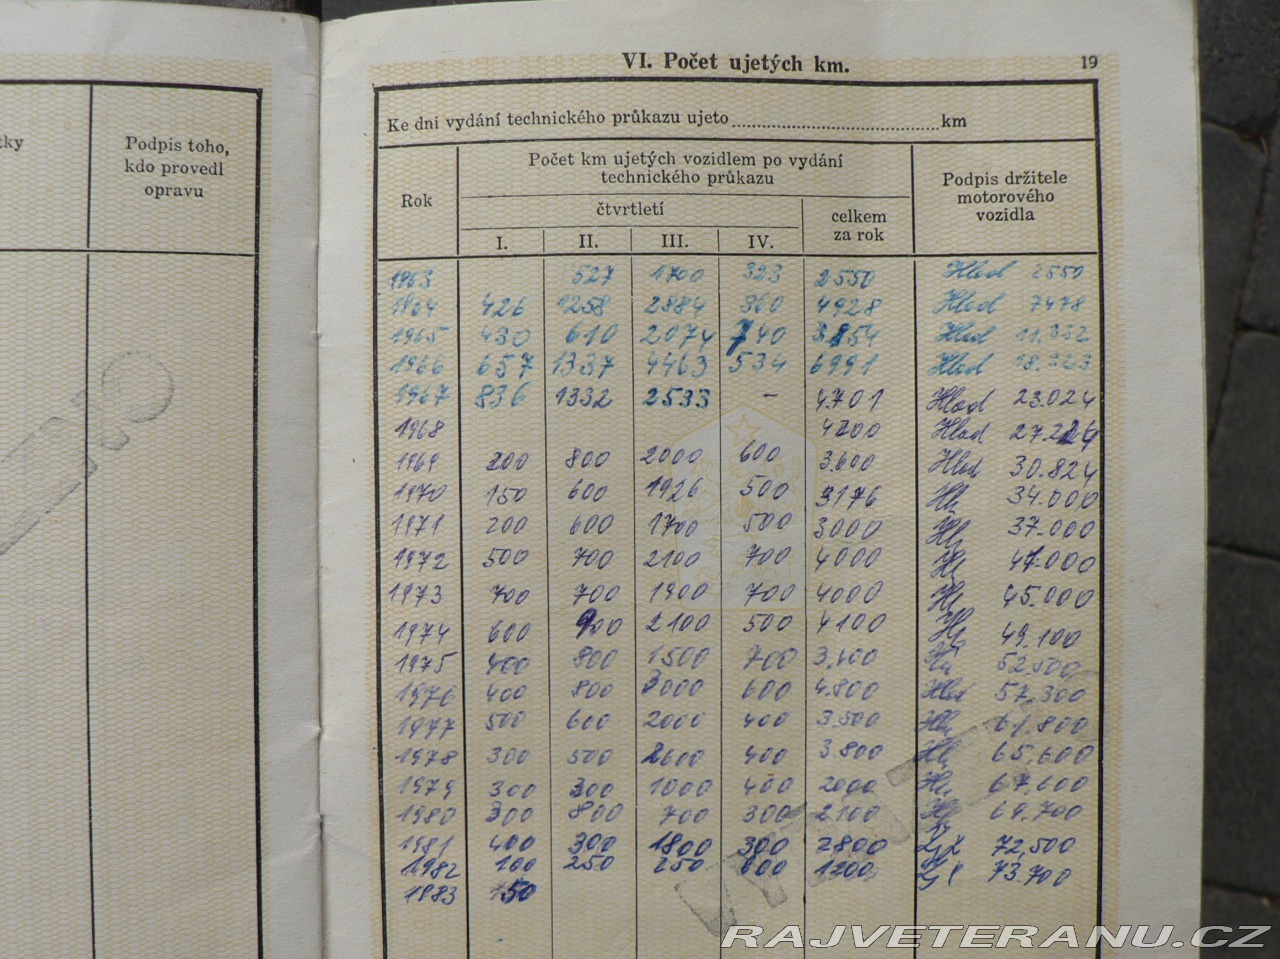 tky
Podpis toho,
kdo provedl
opravu
VI. Počet ujetých km.
19
Ke dni vydání technického průkazu ujeto km
Rok
Počet km ujetých vozidlem po vydání
technického průkazu
čtvrtletí
I. II. III. IV.
celkem
za rok
Podpis držitele
motorového
vozidla
1963 527 1700 323 2550 Hlad 2550
1964 426 1258 2884 360 4928 Hlad 7478
1965 430 610 2074 740 3854 Hlad 11.332
1966 657 1337 4463 534 6991 Hlad 18.323
1967 836 1332 2533 - 4.701 Hlad 23.024
1968 4200 Hlad
1969 200 800 2000 600 3.600 Hlad 30.824
1970 150 600 1926 500 3176 34.000
1971 200 600 1700 500 3000 37.000
1972 500 700 2100 700 4000 41.000
1973 700 700 1900 700 4000 45.000
1974 600 900 2100 500 4100 49.100
1975 400 800 1500 700 3.400 52.500
1976 400 800 3000 600 4.800 Hlad 57.300
1977 500 600 2000 400 3.500 61.800
1978 300 500 2600 400 3.800 65.600
1979 300 300 1000 400 2000 67.600
1980 300 800 700 300 2100 69.700
1981 400 300 1800 300 2800 72,500
1982 100 250 250 600 1200 73.700
1983
RAJVETERANU.CZ